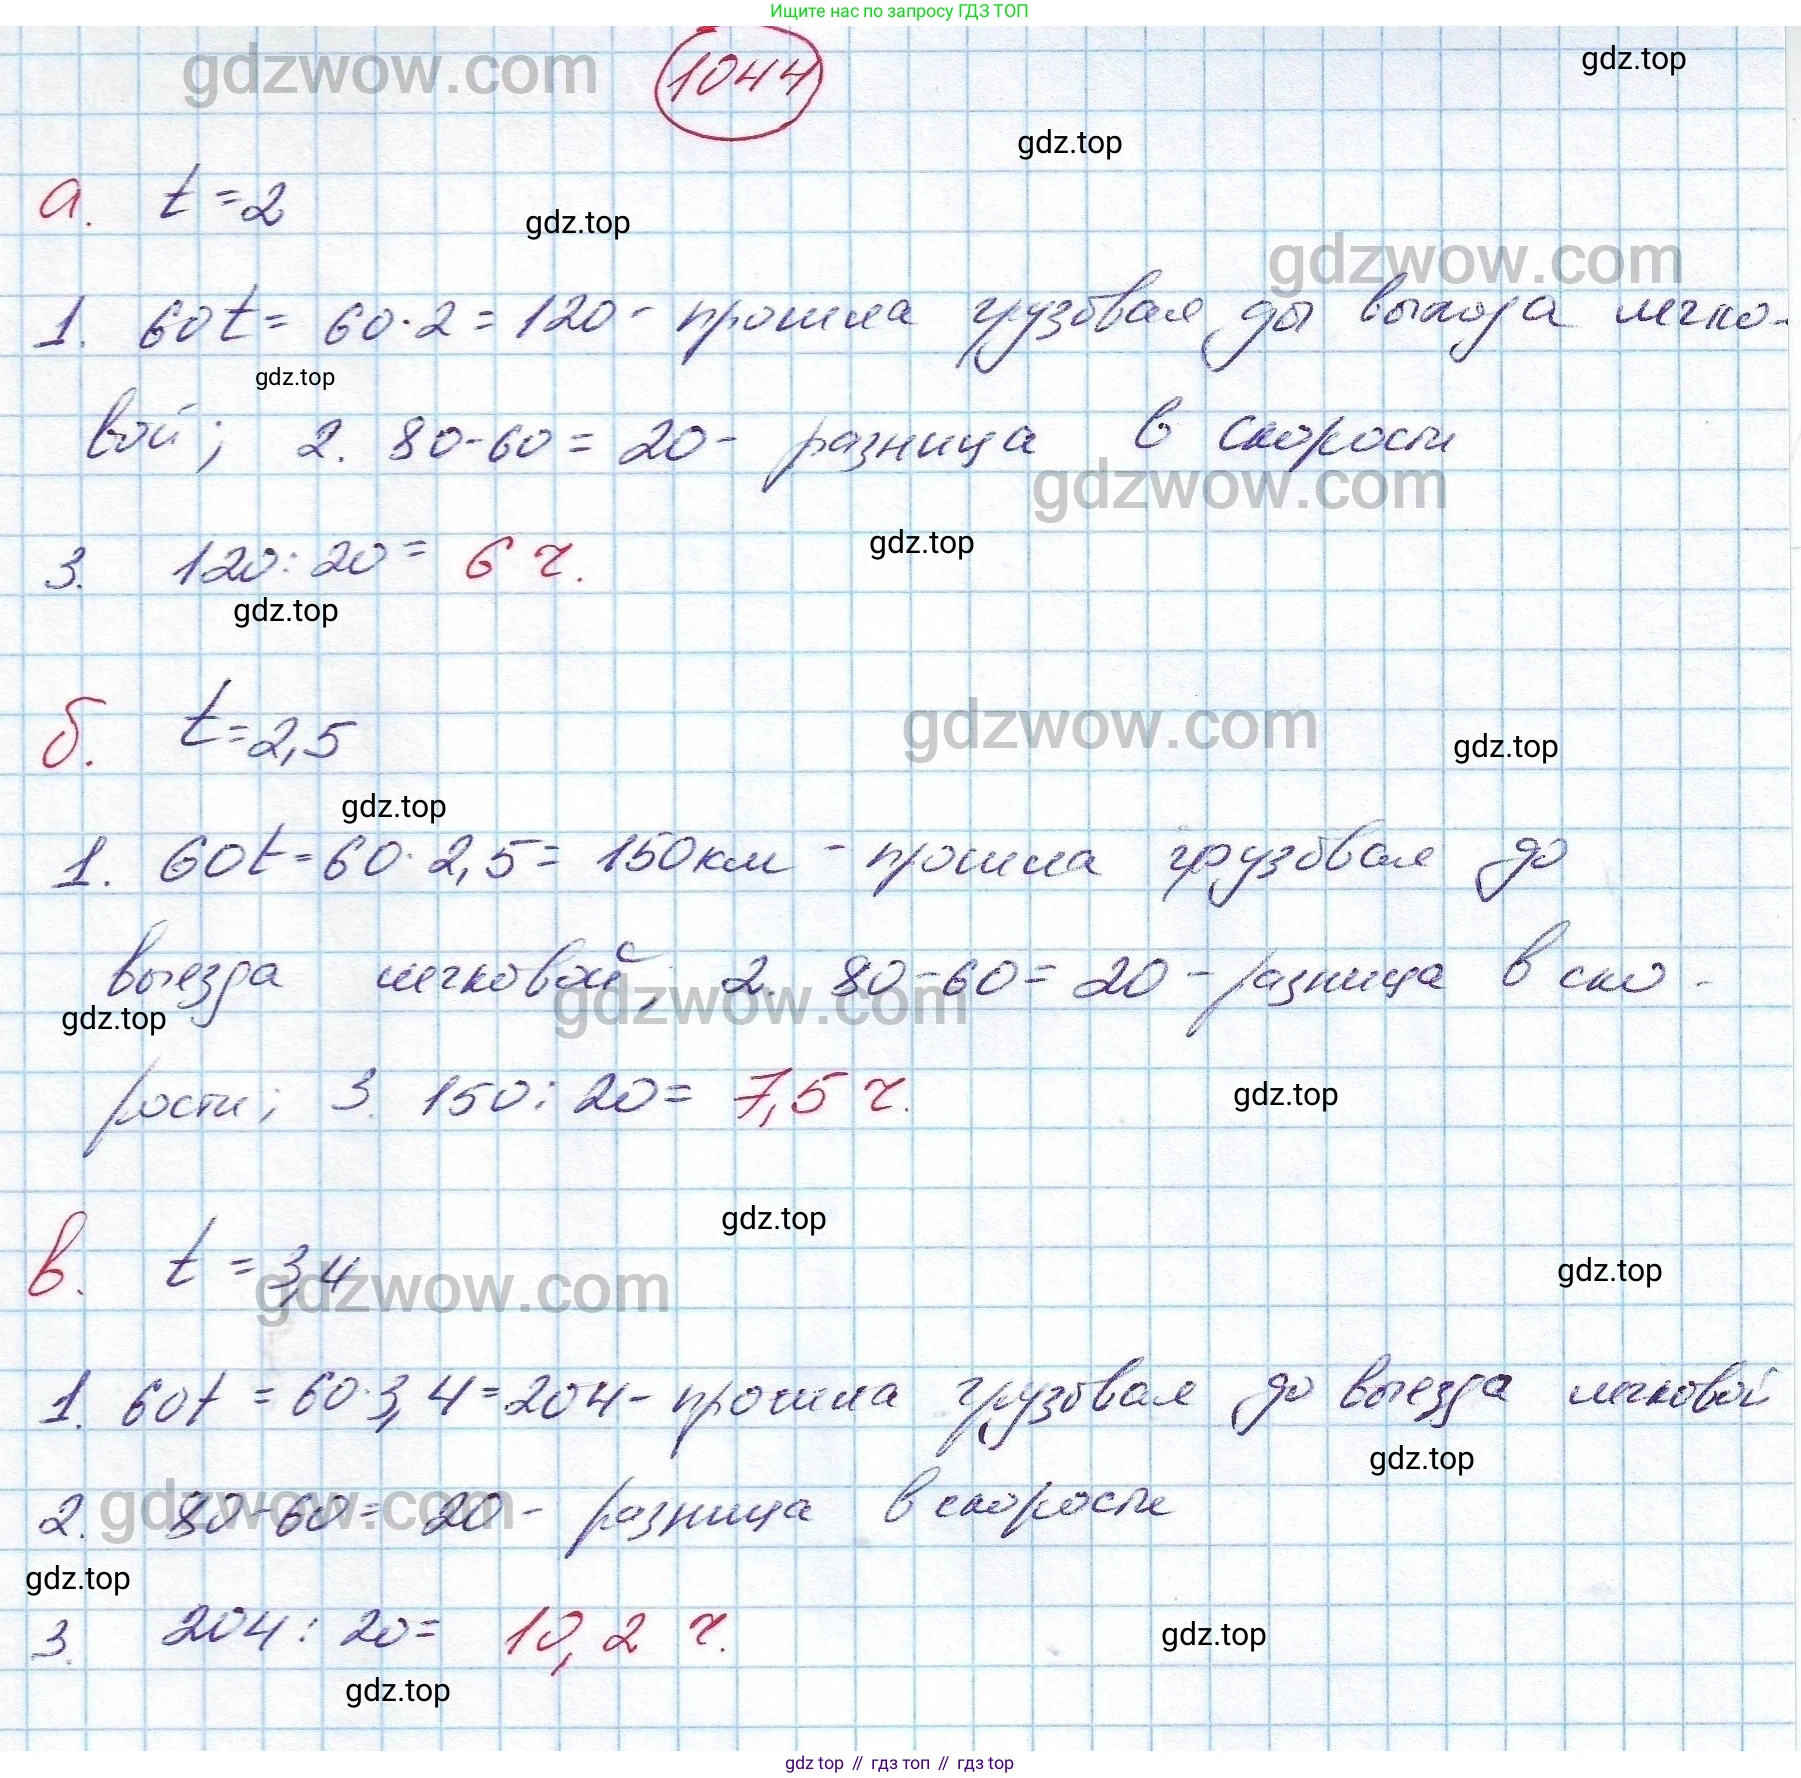 Ищите нас по запросу ГДЗ ТОП
gdzwow.com
1044
gdz.top
gdz.top
а. t = 2
gdz.top
gdzwow.com
1. 60t = 60·2 = 120 - прошла грузовая ды выхода легко-
gdz.top
вой; 2. 80-60 = 20 - разница в скорости
gdzwow.com
3. 120:20 = 6 ч.
gdz.top
gdz.top
б. t = 2,5
gdzwow.com
gdz.top
gdz.top
1. 60t = 60·2,5 = 150км - прошла грузовая до
выезда легковой; 2. 80-60 = 20 - разница в ско-
gdzwow.com
gdz.top
рости; 3. 150:20 = 7,5 ч.
gdz.top
gdz.top
в. t = 3,4
gdzwow.com
gdz.top
1. 60t = 60·3,4 = 204 - прошла грузовая до выезда легковой
gdz.top
2. 80-60 = 20 - разница в скорости
gdzwow.com
gdz.top
3. 204:20 = 10,2 ч.
gdz.top
gdz.top
gdz top // гдз топ // гдз top